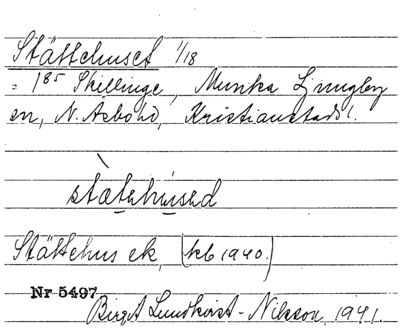 Stättehuset 1/18
= 1⁸⁵ Skillinge, Munka Ljungby
sn, N. Åsbo hd, Kristianstads l.
stætəhùsəd
Stättehus ek, (kb 1940.)
Nr 5497
Birgit Lundkvist-Nilsson, 1941.